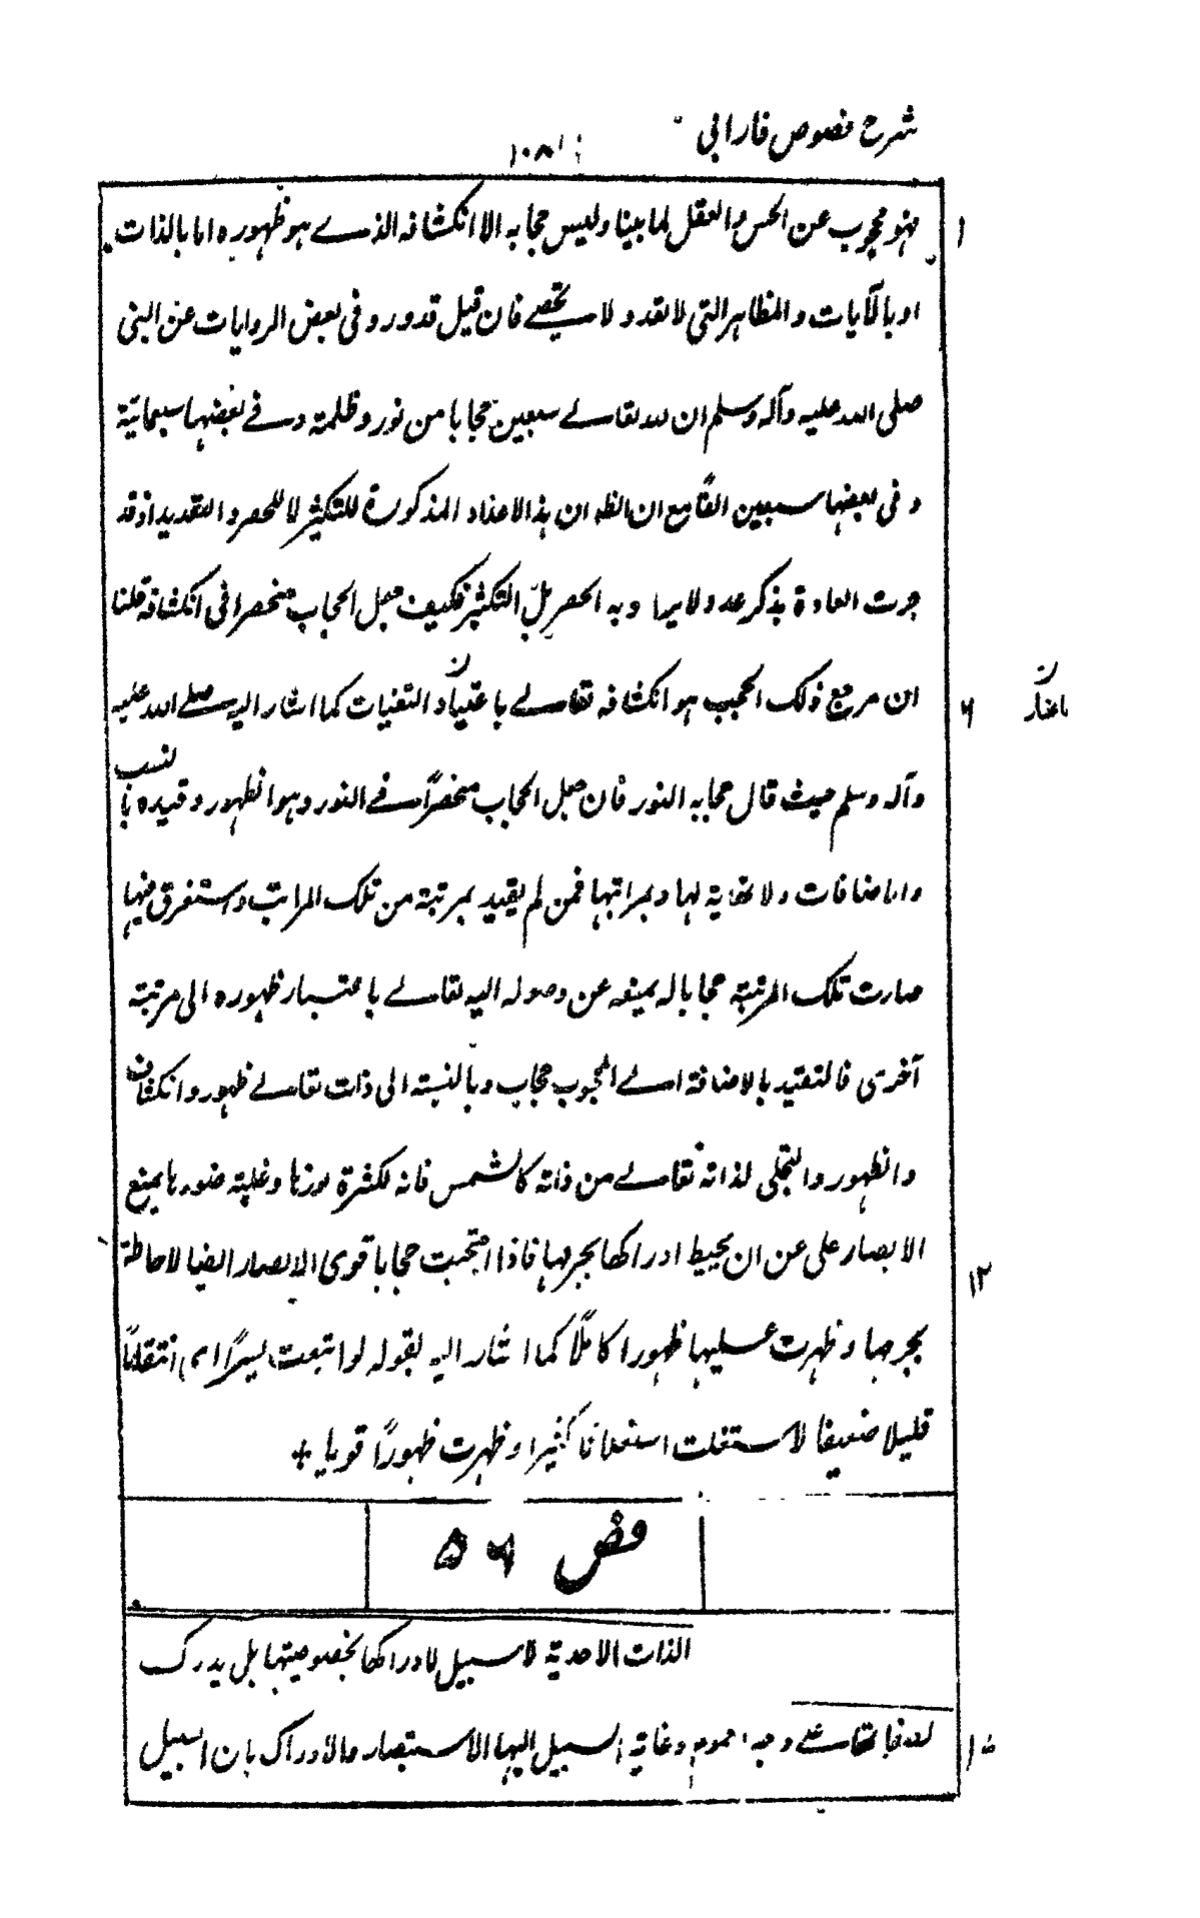 شرح فصوص فارابی
۱۰۸
فهو محجوب عن الحس والعقل لما بينا وليس حجابه الا انكشافه الذے هو ظهوره اما بالذات
۱
او بالآيات والمظاهر التى لا تعد ولا تحصے فان قيل قد ورد فى بعض الروايات عن النبى
صلى الله عليه وآله وسلم ان لله تعالے سبعين حجابا من نور وظلمة وفے بعضها سبعمائة
وفى بعضها سبعين الفًا مع ان الظ ان هذه الاعداد المذكورة للتكثير لا للحصر والتقديد اذ قد
جرت العادة بذكر عدد ولا يراد به الحصر بل التكثير فكيف جعل الحجاب منحصرا فى انكشافه قلنا
ان مرجع ذلك الحجب هو انكشافه تعالے باعتبار التعينات كما اشار اليه صلے الله عليه
۶
باعتبار
وآله وسلم حيث قال حجابه النور فان جعل الحجاب منحصرًا فے النور وهو الظهور وقيده بالنسب
والاضافات ولا نهاية لها ولمراتبها فمن لم يقيد بمرتبة من تلك المراتب واستغرق فيها
صارت تلك المرتبة حجابا له يمنعه عن وصوله اليه تعالے باعتبار ظهوره الى مرتبة
آخرى فالتقييد بالاضافة الے المحجوب حجاب وبالنسبة الى ذات تعالے ظهور وانكشاف
والظهور والتجلى لذاته تعالے من ذاته كالشمس فانه لكثرة نورها وغلبة ضوءها يمنع
الابصار على عن ان يحيط ادراكها بجرمها فاذا احتجبت حجابا قوى الابصار ايضا لاحاطة
۱۲
بجرمها وظهرت عليها ظهورا كاملًا كما اشار اليه بقوله لو اتبعت يسيرًا اى انتقلابًا
قليلا ضعيفا لاستعلت استعلانا كثيرا وظهرت ظهورًا قويا +
فص ۵۶
الذات الاحدية لا سبيل لادراكها بخصوصيتها بل يدرك
تعالے على وجه عموم وغاية السبيل اليها الاستبصار والادراك بان السبيل